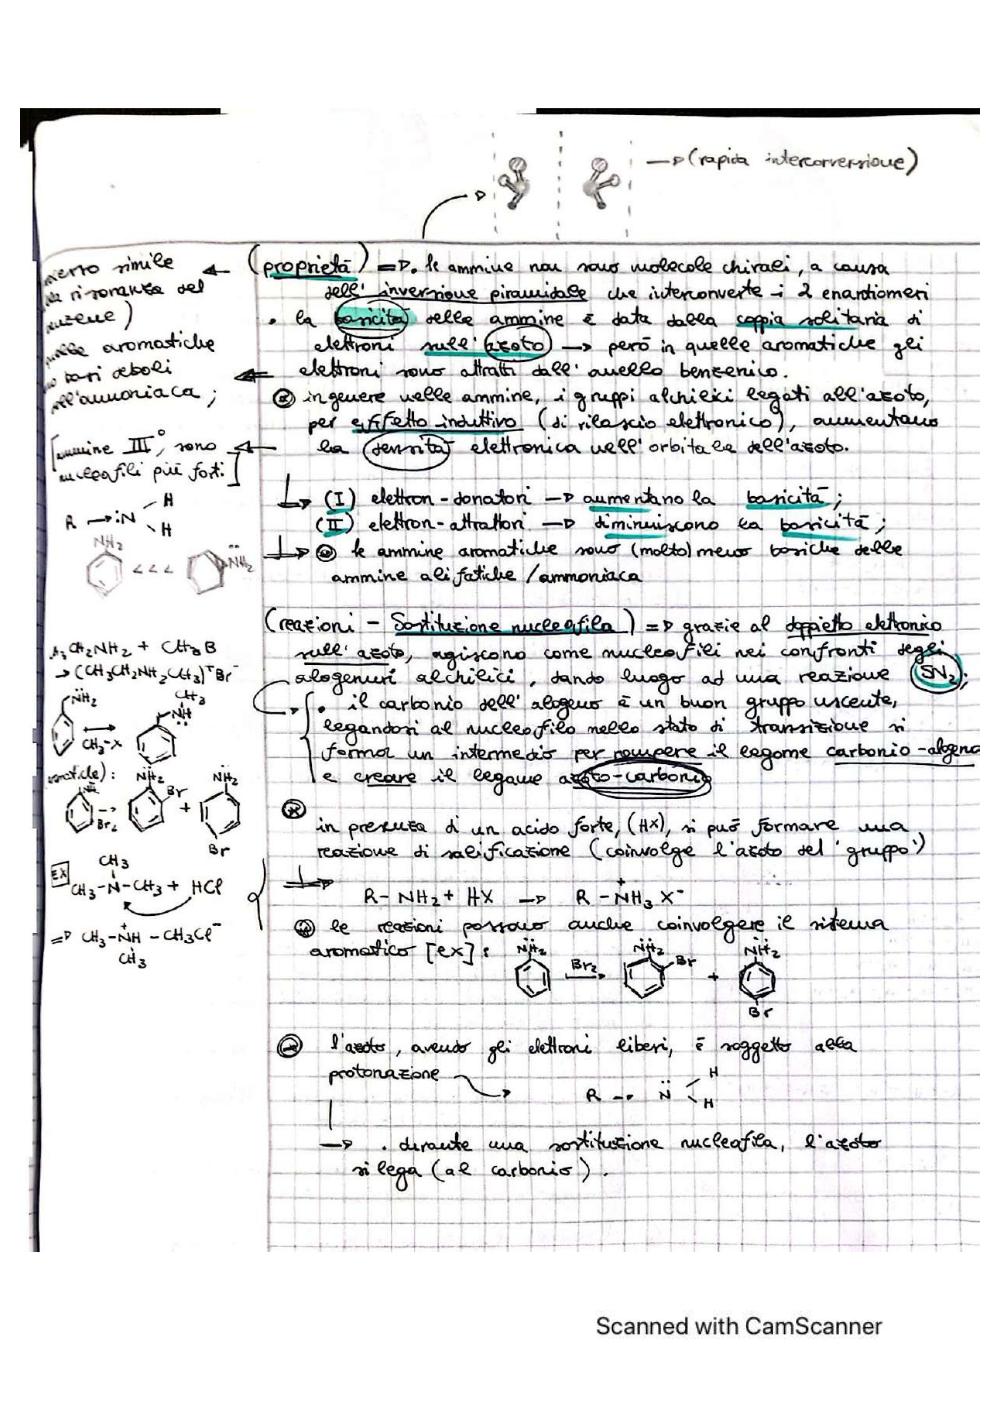 → (rapida interconversione)
(proprietà) => . le ammine non sono molecole chirali, a causa
dell' inversione piramidale che interconverte i 2 enantiomeri
. la basicità delle ammine è data dalla coppia solitaria di
elettroni sull' azoto → però in quelle aromatiche gli
elettroni sono attratti dall' anello benzenico.
in genere nelle ammine, i gruppi alchilici legati all'azoto,
per effetto induttivo (di rilascio elettronico), aumentano
la densità elettronica nell' orbitale dell'azoto.
(I) elettron-donatori → aumentano la basicità;
(II) elettron-attrattori → diminuiscono la basicità;
le ammine aromatiche sono (molto) meno basiche delle
ammine alifatiche / ammoniaca
(reazioni - Sostituzione nucleofila) => grazie al doppietto elettronico
sull' azoto, agiscono come nucleofili nei confronti degli
alogenuri alchilici, dando luogo ad una reazione SN2;
. il carbonio dell' alogeno è un buon gruppo uscente,
legandosi al nucleofilo nello stato di transizione si
forma un intermedio per rompere il legame carbonio-alogeno
e creare il legame azoto-carbonio
in presenza di un acido forte, (HX), si può formare una
reazione di salificazione (coinvolge l'azoto del 'gruppo')
R-NH2 + HX → R-NH3 X-
le reazioni possono anche coinvolgere il sistema
aromatico [ex]:
NH2 Br2 NH2 Br + NH2 Br
l'azoto, avendo gli elettroni liberi, è soggetto alla
protonazione
R → N H H
→ . durante una sostituzione nucleofila, l'azoto
si lega (al carbonio).
simile
risonanza del
aromatiche
basi deboli
ell'ammoniaca;
[ammine III°, sono
nucleofili più forti.]
R → N H H
NH2 <<< NH2
CH2NH2 + CH3B
→ (CH3CH2NH2CH3)+Br-
NH2 CH3-X CH3 NH
NH2 Br2 NH2 Br + NH2 Br
EX
CH3
CH3-N-CH3 + HCl
=> CH3-NH-CH3Cl-
CH3
Scanned with CamScanner